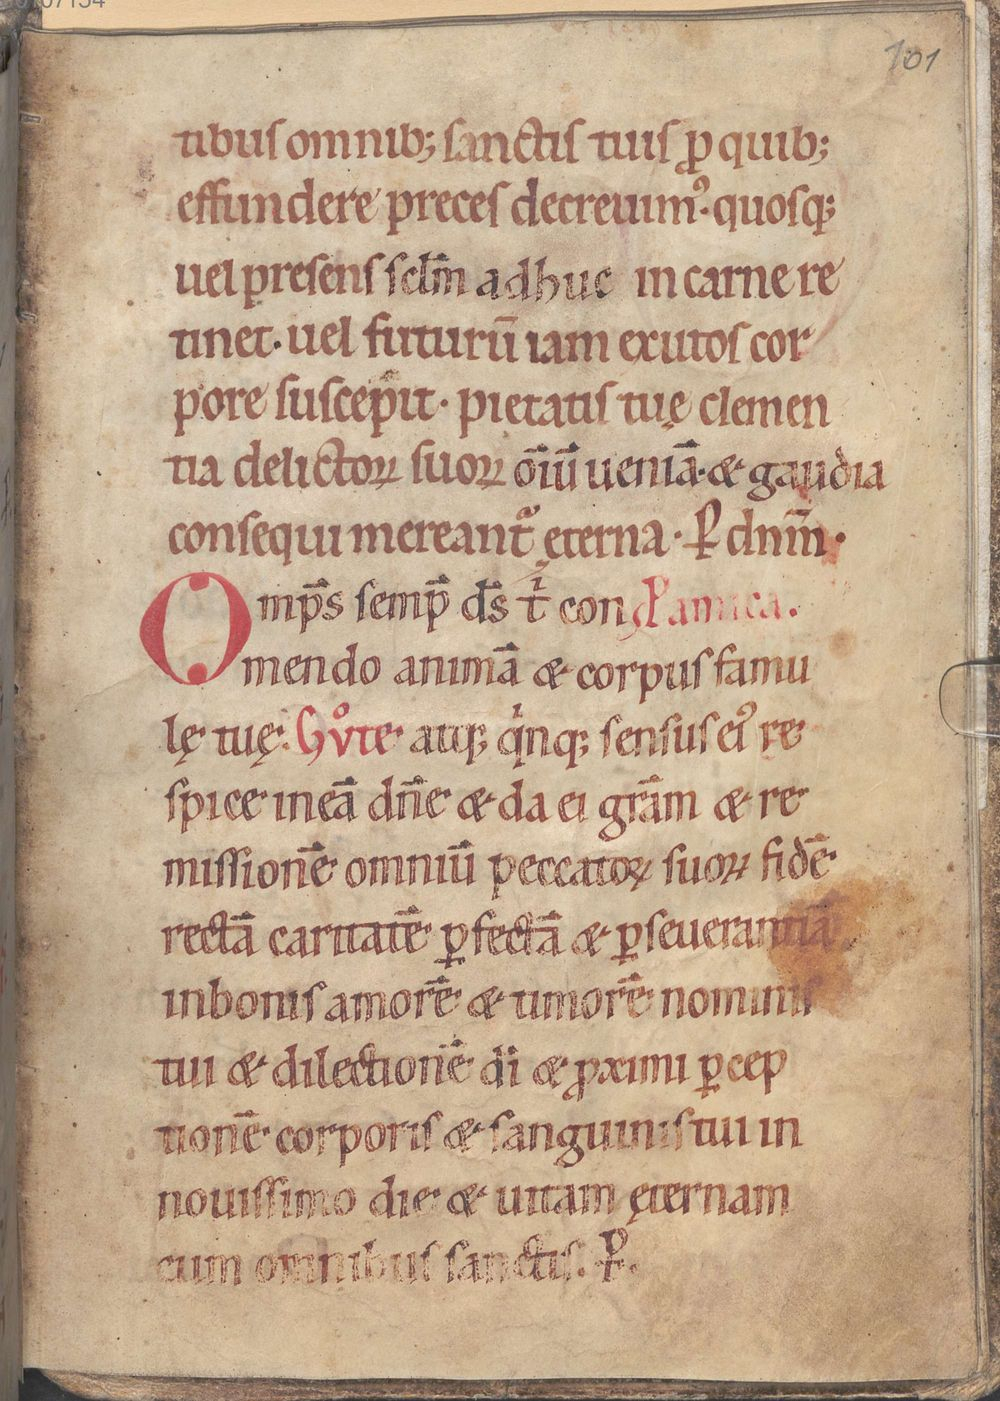 101
tibus omnib; sanctis tuis ꝓ quib;
effundere preces decreuim᾽· quosq;
uel presens sclm̄ adhuc in carne re
tinet· uel futurū iam exutos cor
pore suscepit· pietatis tuę clemen
tia delictoꝝ suoꝝ om̄iū ueniā· & gaudia
consequi mereant᷑ ęterna· P̱ dnm̄·
Omp̄s semp̄ ds̄ ti̅ con P̱ amica.
mendo animā & corpus famu
lę tuę. atq; qinq; sensus ei᾽ re
spice in eā dn̄e & da ei grām & re
missionē omniū peccatoꝝ suoꝝ fidē
rectā caritatē ꝑfectā & ꝑseuerantiā
in bonis amorē & timorē nominis
tui & dilectionē di̅ & ꝓximi ꝑcep
tionē corporis & sanguinis tui in
nouissimo die & uitam ęternam
cum omnibus sanctis. P̱.